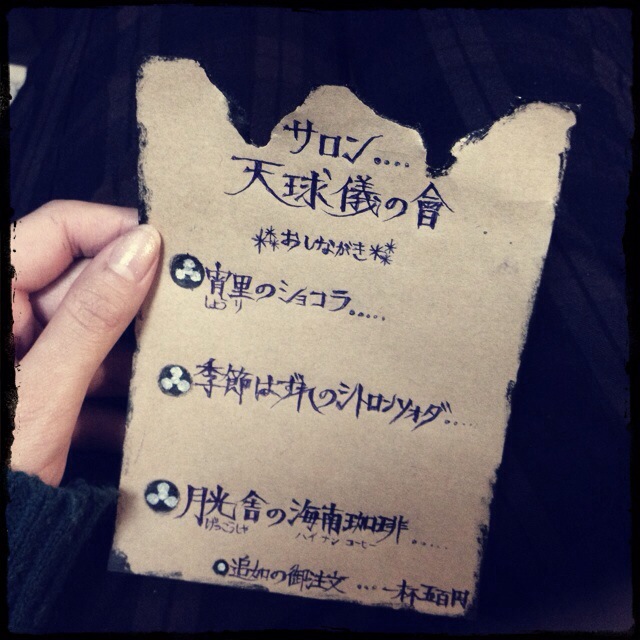 サロン....
天球儀の會
おしながき
宵里のショコラ.....
しょうり
季節はずれのシトロンソォダ.....
月光舎の海南珈琲......
げっこうしゃ ハイナンコーヒー
追加の御注文 .... 一杯五百円